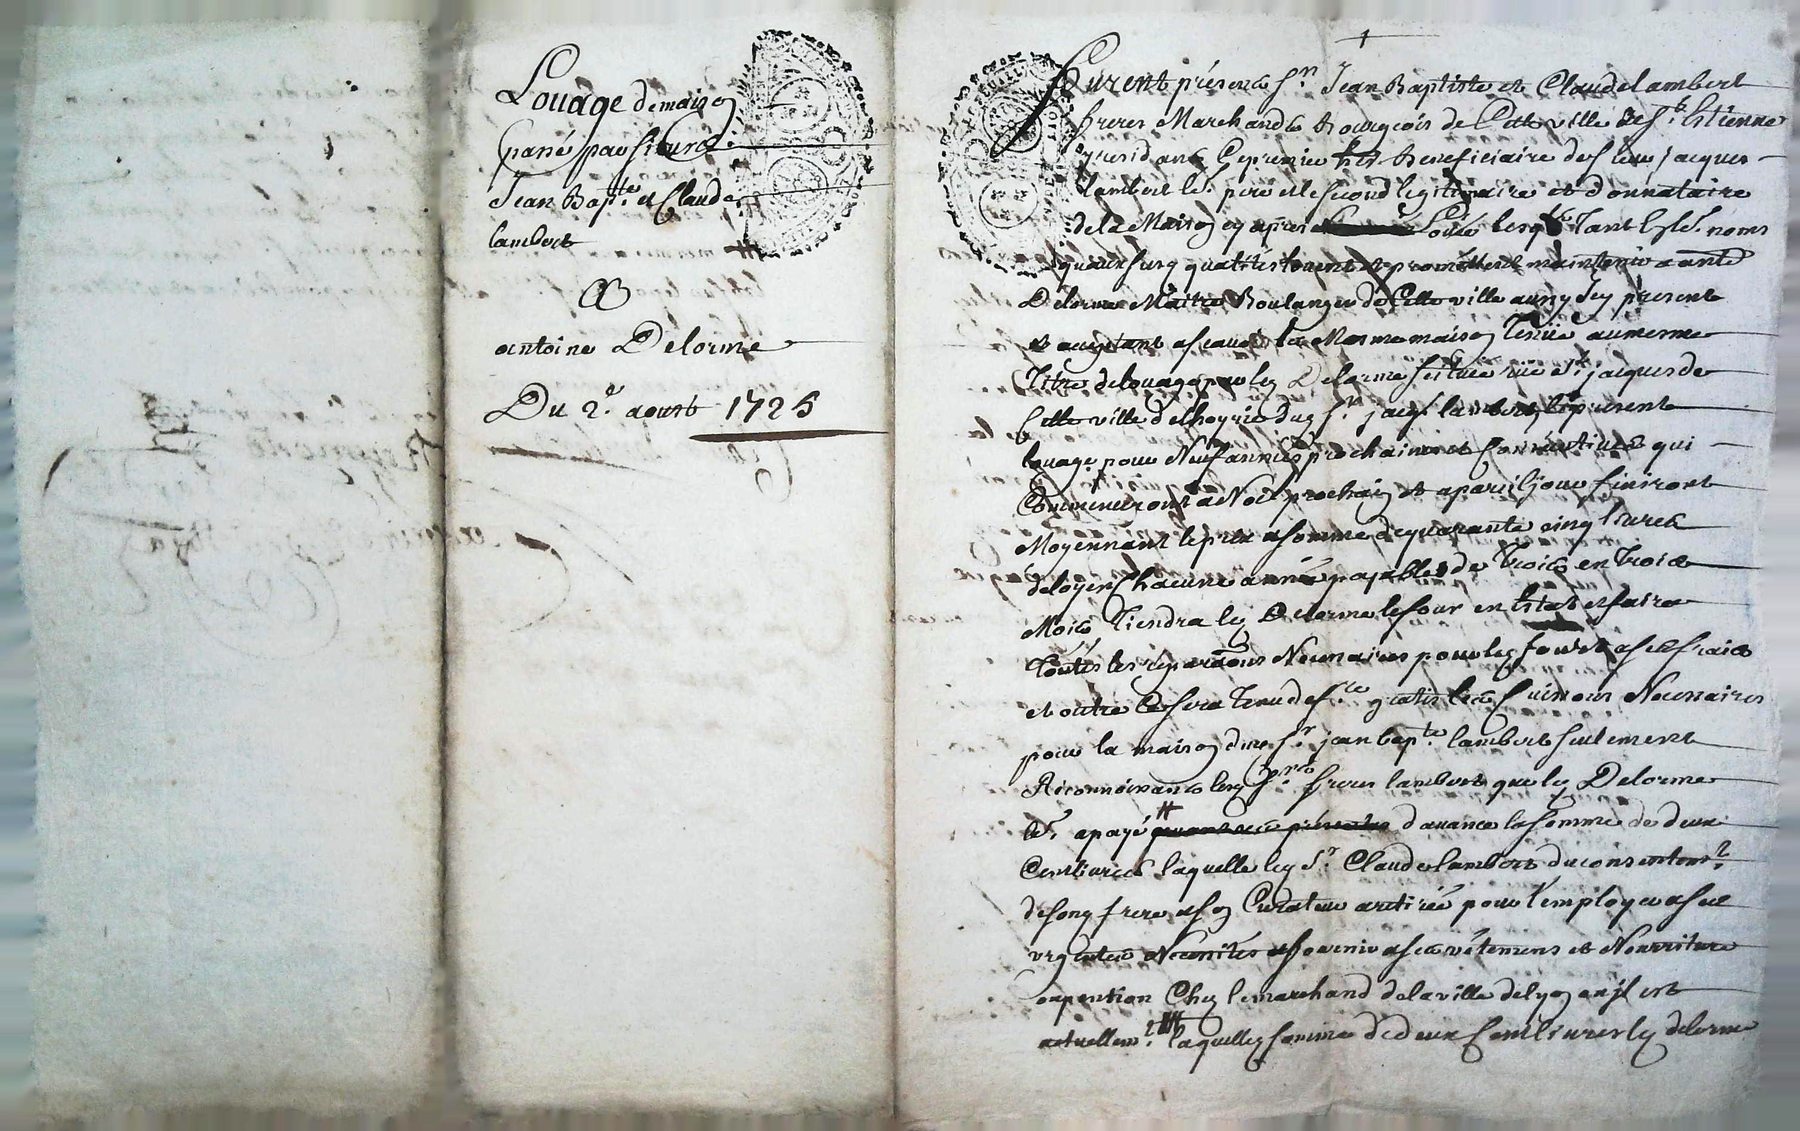 Louage de maison
passé par sieurs
Jean Bap.te et Claude
lambert
A
antoine Delorme
Du 2.e aoust 1725
Furent présens s.rs Jean Baptiste et Claude lambert
freres Marchands Bourgeois de Cette ville de s.t Estienne
le premier Beneficiaire de feu jacques
lambert leur pere et le second legitimaire et donnataire
de la Maison cy apres Louée lesq.ls tant esd. noms
quaux susd. qualités louent et promettent maintenir a ant.e
Delorme Maitre Boulanger de Cette ville aussy icy présent
et acceptant ascavoir la Mesme maison Tenüe au mesme
Titre de louage par led. Delorme scituée rüe s.t jacques de
Cette ville de lhoyrie dud. s.r jacq. lambert le présent
louage pour Neuf années prochaines et Consécutives qui
Commenceront a Noel prochain et a pareil jour finiront
Moyennant le prix et somme de quarante cinq livres
de loyer Chacune année payables de Trois en Trois
Mois Tiendra led. Delorme le four en Estat et faira
Toutes les réparaõns Necessaires pour led. four a ses frais
et outre Ce sera Tenu de gratis les Cuissons Necessaires
pour la maison dud. s.r jean bap.te lambert seulement
Réconnoissants lesd. s.rs freres lambert que led. Delorme
leur a payé d'auance la somme de deux
Cent livres laquelle led. s.r Claude lambert du consentem.t
de son frere et son Curateur a retirée pour l'employer a ses
urgentes Necessités et fournir a ses vétemens et Nourriture
en pention Chez le marchand de la ville de lyon ou jl est
actuellem.t laquelle somme de deux Cent livres led. delorme